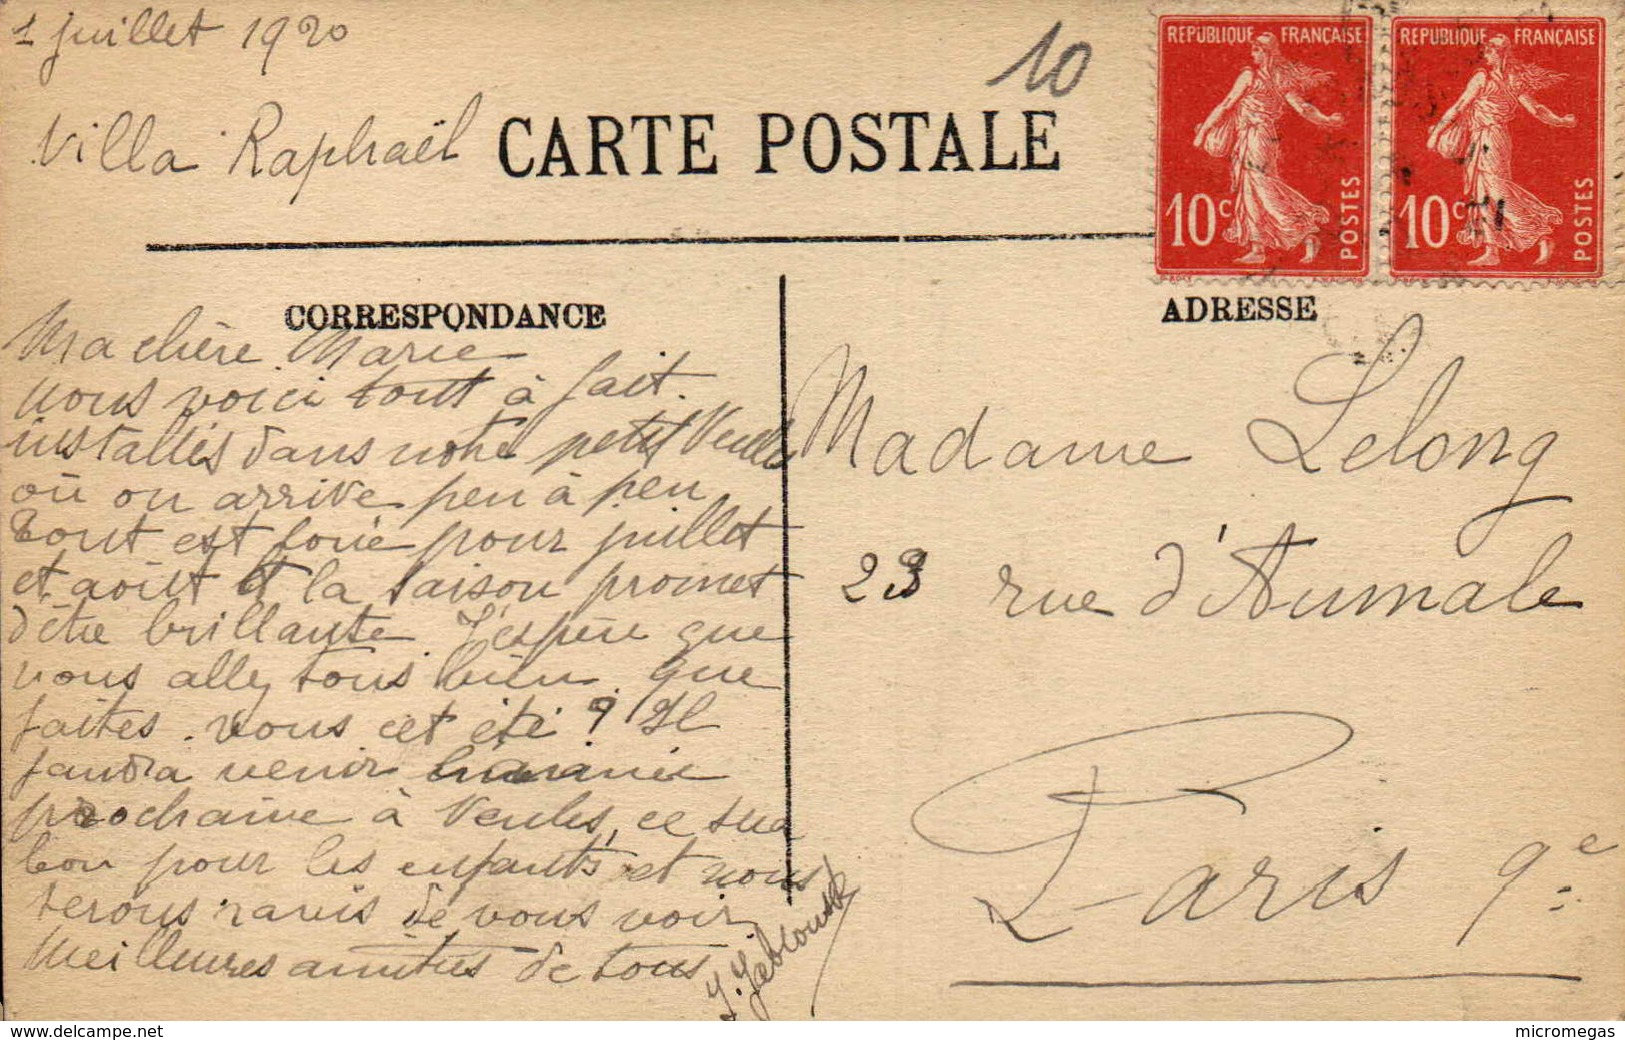 1 juillet 1920
10
Villa Raphaël
CARTE POSTALE
REPUBLIQUE FRANÇAISE
10c POSTES
REPUBLIQUE FRANÇAISE
10c POSTES
CORRESPONDANCE
Ma chère Marie
nous voici tout à fait
installés dans notre petit Veules
où on arrive peu à peu
tout est loué pour juillet
et août et la saison promet
d'être brillante. J'espère que
vous allez tous bien. que
faites-vous cet été ? Il
faudra venir l'année
prochaine à Veules, ce sera
bon pour les enfants et nous
serons ravis de vous voir
Meilleures amitiés de tous
ADRESSE
Madame Lelong
23 rue d'Aumale
Paris 9e
delcampe.net
micromegas